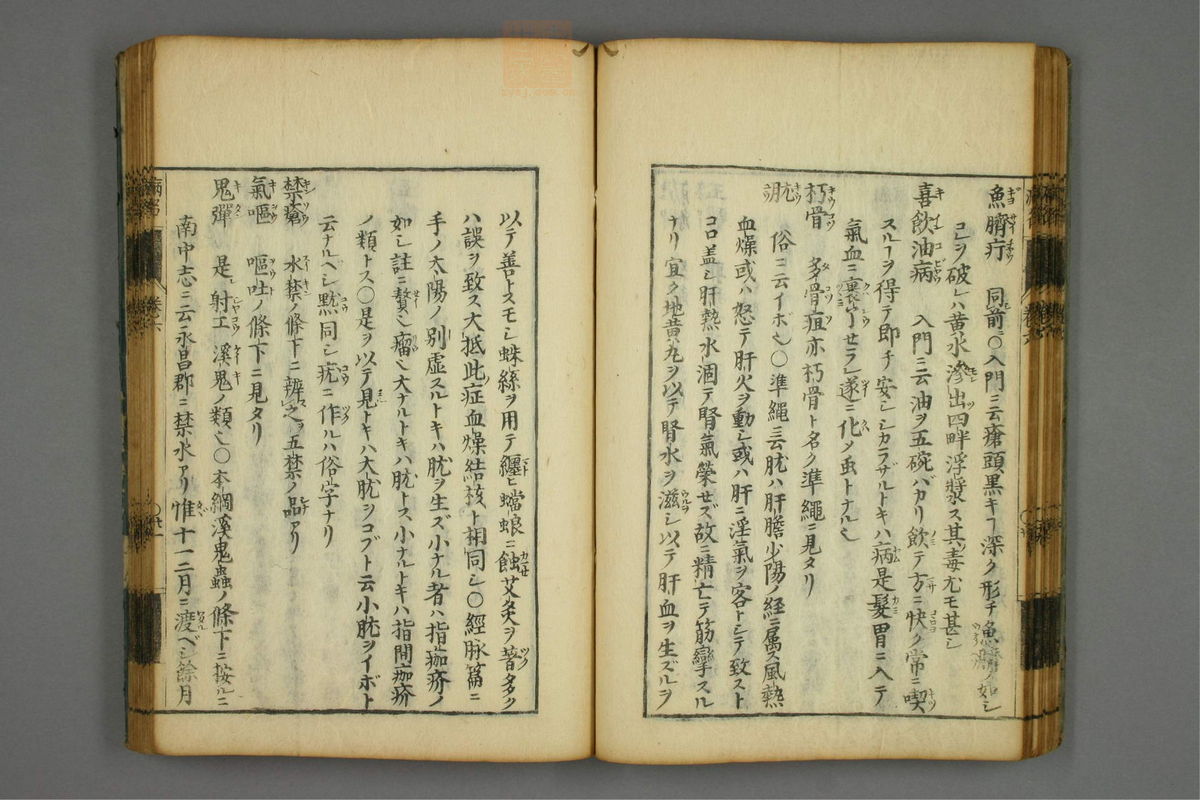 魚臍疔 同前ニ○入門ニ云瘡頭黒キフ深ク形チ魚臍ノ如シ
コレヲ破レハ黄水滲出四畔浮漿ス其毒尤モ甚シ
喜飲油病 入門ニ云油ヲ五碗バカリ飲テ方ニ快ク常ニ喫
スルヿヲ得テ即チ安シシカラサルトキハ病是髪胃ニ入テ
氣血ニ裹セラレ遂ニ化メ虫トナル
朽骨 多骨疽亦朽骨ト名ク準繩ニ見タリ
肬 俗ニ云イボ也○準繩ニ云肬ハ肝膽少陽ノ経ニ属ス風熱
血燥或ハ怒テ肝火ヲ動シ或ハ肝ニ淫氣ヲ客トシテ致スト
コロ盖シ肝熱水涸テ腎氣榮セズ故ニ精亡テ筋攣スル
ナリ宜ク地黄丸ヲ以テ腎水ヲ滋シ以テ肝血ヲ生ズルヲ
以テ善トスモシ蛛絲ヲ用テ纏ヒ蟷螂ニ蝕艾灸ヲ著多ク
ハ誤ヲ致ス大抵此症血燥結核ト相同シ○經脉篇ニ
手ノ太陽ノ別虚スルトキハ肬ヲ生ズ小ナル者ハ指痂疥ノ
如シ註ニ贅也瘤也大ナルトキハ肬トス小ナルトキハ指間痂疥
ノ類トス○是ヲ以テ見トキハ大肬ヲコブト云小肬ヲイボト
云ナルヘシ黙同シ疣ニ作ルハ俗字ナリ
禁瘡 水禁ノ條下ニ辨之五禁ノ品アリ
氣嘔 嘔吐ノ條下ニ見タリ
鬼彈 是レ射工溪鬼ノ類也○本綱溪鬼蟲ノ條下ニ按ルニ
南中志ニ云永昌郡ニ禁水アリ惟十一二月ニ渡ベシ餘月
卷六